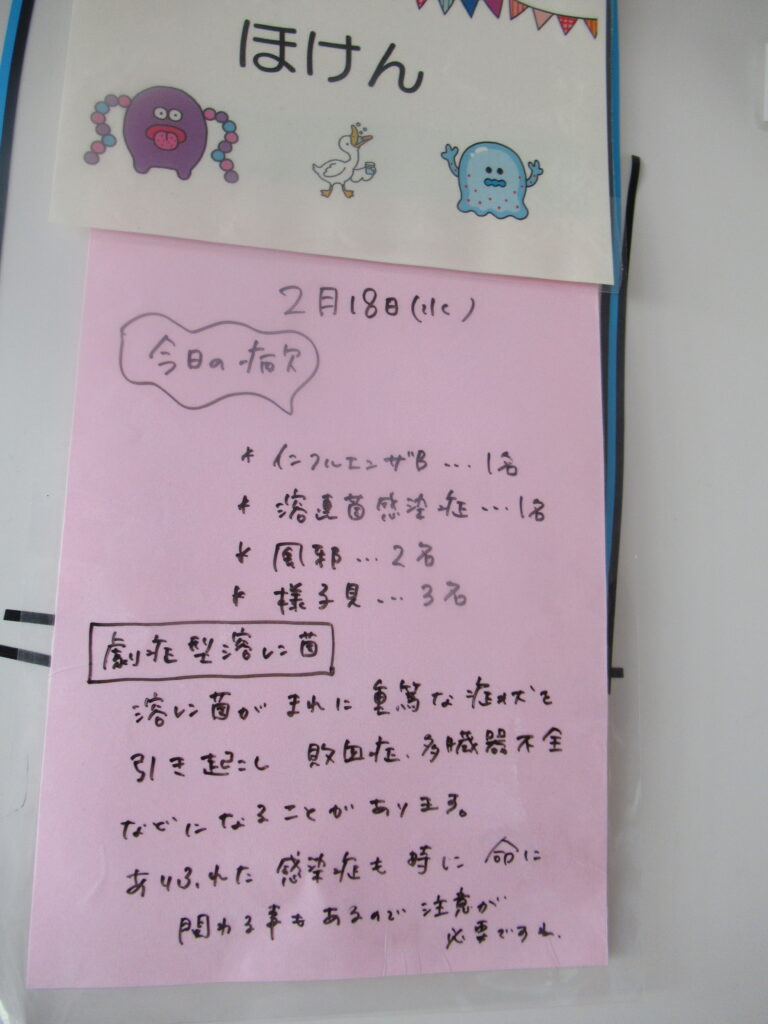 ほけん
2月18日(水)
今日の病欠
* インフルエンザB…1名
* 溶連菌感染症…1名
* 風邪…2名
* 様子見…3名
劇症型溶レン菌
溶レン菌がまれに重篤な症状を
引き起こし 敗血症、多臓器不全
などになることがあります。
ありふれた感染症も時に命に
関わる事もあるので注意が
必要ですね。